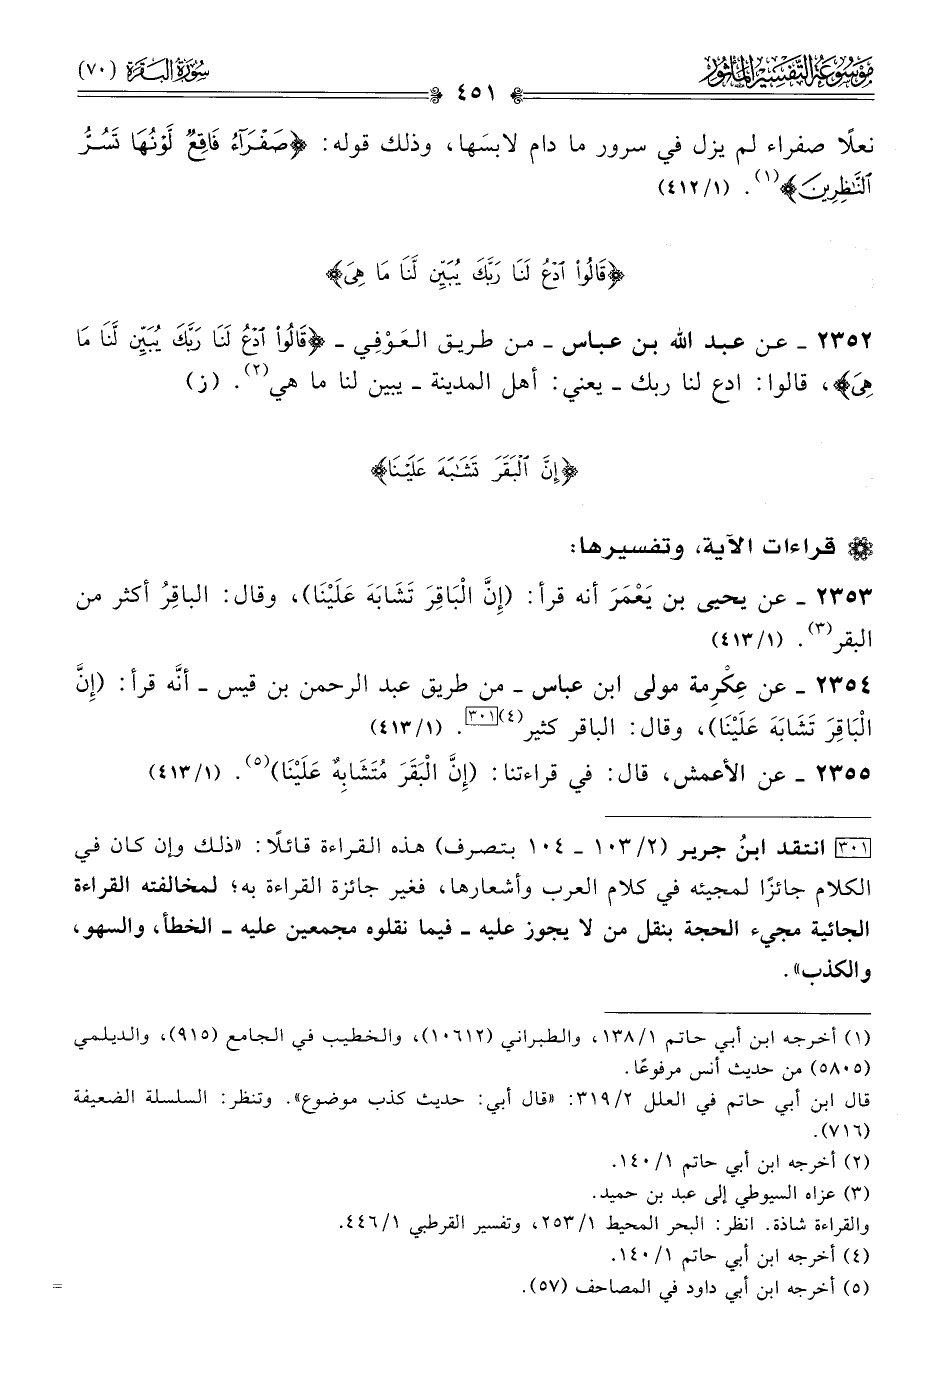 مَوْسُوعَة التَّفْسِير المَأْثُور
٤٥١
سُورَة البَقَرَة (٧٠)
نعلًا صفراء لم يزل في سرور ما دام لابسَها، وذلك قوله: ﴿صَفْرَآءُ فَاقِعٌ لَّوْنُهَا تَسُرُّ
ٱلنَّٰظِرِينَ﴾(١). (٤١٢/١)
﴿قَالُوا۟ ٱدْعُ لَنَا رَبَّكَ يُبَيِّن لَّنَا مَا هِىَ﴾
٢٣٥٢ ـ عن عبد الله بن عباس ـ من طريق العَوْفِي ـ ﴿قَالُوا۟ ٱدْعُ لَنَا رَبَّكَ يُبَيِّن لَّنَا مَا
هِىَ﴾، قالوا: ادع لنا ربك ـ يعني: أهل المدينة ـ يبين لنا ما هي(٢). (ز)
﴿إِنَّ ٱلْبَقَرَ تَشَٰبَهَ عَلَيْنَا﴾
قراءات الآية، وتفسيرها:
٢٣٥٣ ـ عن يحيى بن يَعْمَرَ أنه قرأ: (إِنَّ الْبَاقِرَ تَشَابَهَ عَلَيْنَا)، وقال: الباقِرُ أكثر من
البقر(٣). (٤١٣/١)
٢٣٥٤ ـ عن عِكْرِمة مولى ابن عباس ـ من طريق عبد الرحمن بن قيس ـ أنَّه قرأ: (إِنَّ
الْبَاقِرَ تَشَابَهَ عَلَيْنَا)، وقال: الباقر كثير(٤)[٣٠١]. (٤١٣/١)
٢٣٥٥ ـ عن الأعمش، قال: في قراءتنا: (إِنَّ الْبَقَرَ مُتَشَابِهٌ عَلَيْنَا)(٥). (٤١٣/١)
[٣٠١] انتقد ابنُ جرير (١٠٣/٢ ـ ١٠٤ بتصرف) هذه القراءة قائلًا: «ذلك وإن كان في
الكلام جائزًا لمجيئه في كلام العرب وأشعارها، فغير جائزة القراءة به؛ لمخالفته القراءة
الجائية مجيء الحجة بنقل من لا يجوز عليه ـ فيما نقلوه مجمعين عليه ـ الخطأ، والسهو،
والكذب».
(١) أخرجه ابن أبي حاتم ١٣٨/١، والطبراني (١٠٦١٢)، والخطيب في الجامع (٩١٥)، والديلمي
(٥٨٠٥) من حديث أنس مرفوعًا.
قال ابن أبي حاتم في العلل ٣١٩/٢: «قال أبي: حديث كذب موضوع». وتنظر: السلسلة الضعيفة
(٧١٦).
(٢) أخرجه ابن أبي حاتم ١٤٠/١.
(٣) عزاه السيوطي إلى عبد بن حميد.
والقراءة شاذة. انظر: البحر المحيط ٢٥٣/١، وتفسير القرطبي ٤٤٦/١.
(٤) أخرجه ابن أبي حاتم ١٤٠/١.
(٥) أخرجه ابن أبي داود في المصاحف (٥٧). =